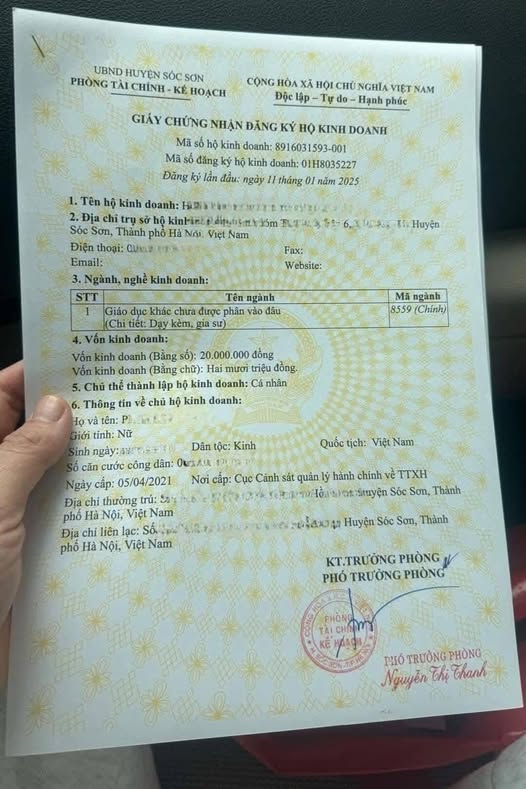 UBND HUYỆN SÓC SƠN
PHÒNG TÀI CHÍNH - KẾ HOẠCH
CỘNG HÒA XÃ HỘI CHỦ NGHĨA VIỆT NAM
Độc lập – Tự do – Hạnh phúc
GIẤY CHỨNG NHẬN ĐĂNG KÝ HỘ KINH DOANH
Mã số hộ kinh doanh: 8916031593-001
Mã số đăng ký hộ kinh doanh: 01H8035227
Đăng ký lần đầu: ngày 11 tháng 01 năm 2025
1. Tên hộ kinh doanh:
2. Địa chỉ trụ sở hộ kinh 6, Huyện
Sóc Sơn, Thành phố Hà Nội, Việt Nam
Điện thoại: Fax:
Email: Website:
3. Ngành, nghề kinh doanh:
STT Tên ngành Mã ngành
1 Giáo dục khác chưa được phân vào đâu 8559 (Chính)
(Chi tiết: Dạy kèm, gia sư)
4. Vốn kinh doanh:
Vốn kinh doanh (Bằng số): 20.000.000 đồng
Vốn kinh doanh (Bằng chữ): Hai mươi triệu đồng.
5. Chủ thể thành lập hộ kinh doanh: Cá nhân
6. Thông tin về chủ hộ kinh doanh:
Họ và tên: P
Giới tính: Nữ
Sinh ngày: Dân tộc: Kinh Quốc tịch: Việt Nam
Số căn cước công dân:
Ngày cấp: 05/04/2021 Nơi cấp: Cục Cảnh sát quản lý hành chính về TTXH
Địa chỉ thường trú: Huyện Sóc Sơn, Thành
phố Hà Nội, Việt Nam
Địa chỉ liên lạc: Số Huyện Sóc Sơn, Thành
phố Hà Nội, Việt Nam
KT.TRƯỞNG PHÒNG
PHÓ TRƯỞNG PHÒNG
PHÒNG
TÀI CHÍNH
KẾ HOẠCH
PHÓ TRƯỞNG PHÒNG
Nguyễn Thị Thanh